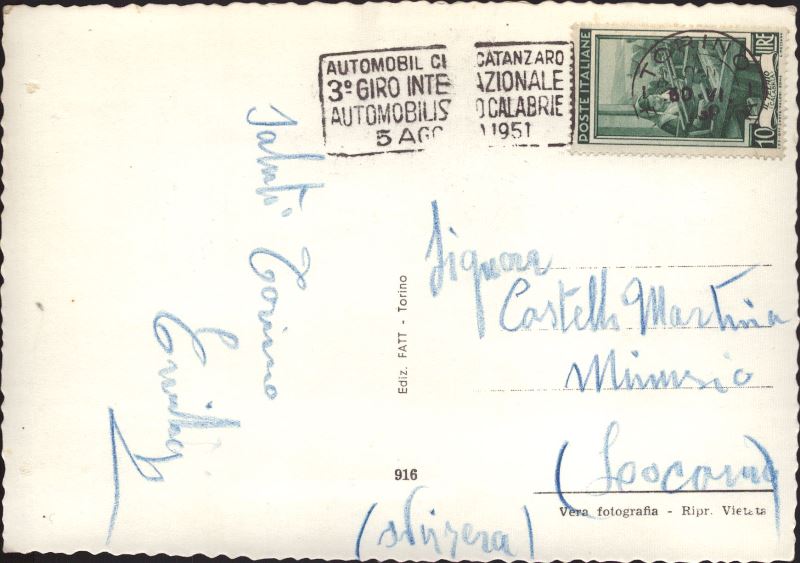 AUTOMOBIL CL CATANZARO
3º GIRO INTE AZIONALE
AUTOMOBILIS O CALABRIE
5 AGO 1951
POSTE ITALIANE
10 LIRE
TORINO
Saluti Torino
Ediz. FATT - Torino
916
Signora
Castelli Martina
Minusio
(Locarno
(Svizera)
Vera fotografia - Ripr. Vietata